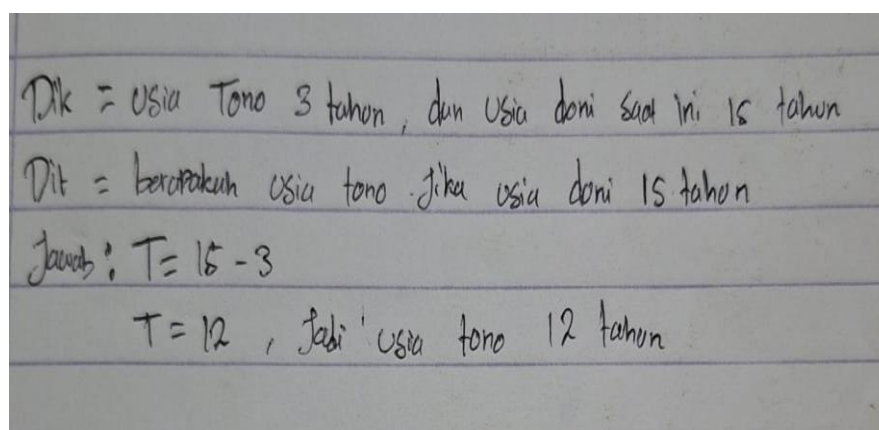 Dik = usia Tono 3 tahun, dan usia doni saat ini 15 tahun
Dit = berapakah usia tono jika usia doni 15 tahun
Jawab : T = 15 - 3
T = 12 , Jadi usia tono 12 tahun